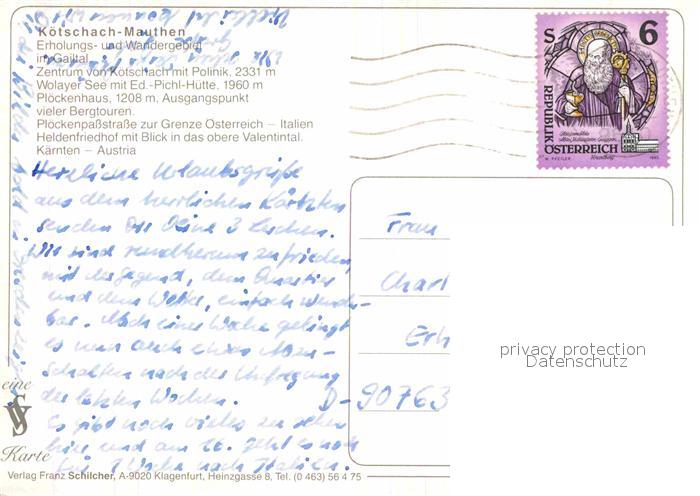 Kötschach-Mauthen
Erholungs- und Wandergebiet
im Gailtal
Zentrum von Kötschach mit Polinik, 2331 m
Wolayer See mit Ed.-Pichl-Hütte, 1960 m
Plöckenhaus, 1208 m, Ausgangspunkt
vieler Bergtouren.
Plöckenpaßstraße zur Grenze Österreich – Italien
Heldenfriedhof mit Blick in das obere Valentintal.
Kärnten – Austria
S 6
REPUBLIK
ÖSTERREICH
Herzliche Urlaubsgrüße
aus dem herrlichen Kärnten
senden Dir Deine 3
Wir sind rundherum zufrieden
mit der Gegend, dem Quartier
und dem Wetter, einfach wunder-
bar. Nach einer Woche gelingt
es nun auch etwas abzu-
schalten nach der Aufregung
der letzten Wochen.
Es gibt noch vieles zu sehen
hier und am geht es noch
für 1 Woche nach Italien.
Frau
Charl
Erh
D-90763
privacy protection
Datenschutz
eine
Karte
Verlag Franz Schilcher, A-9020 Klagenfurt, Heinzgasse 8, Tel. (0 463) 56 4 75